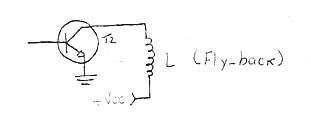 T2
L (Fly-back)
+Vcc